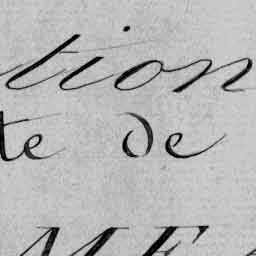 tion
te de
ME